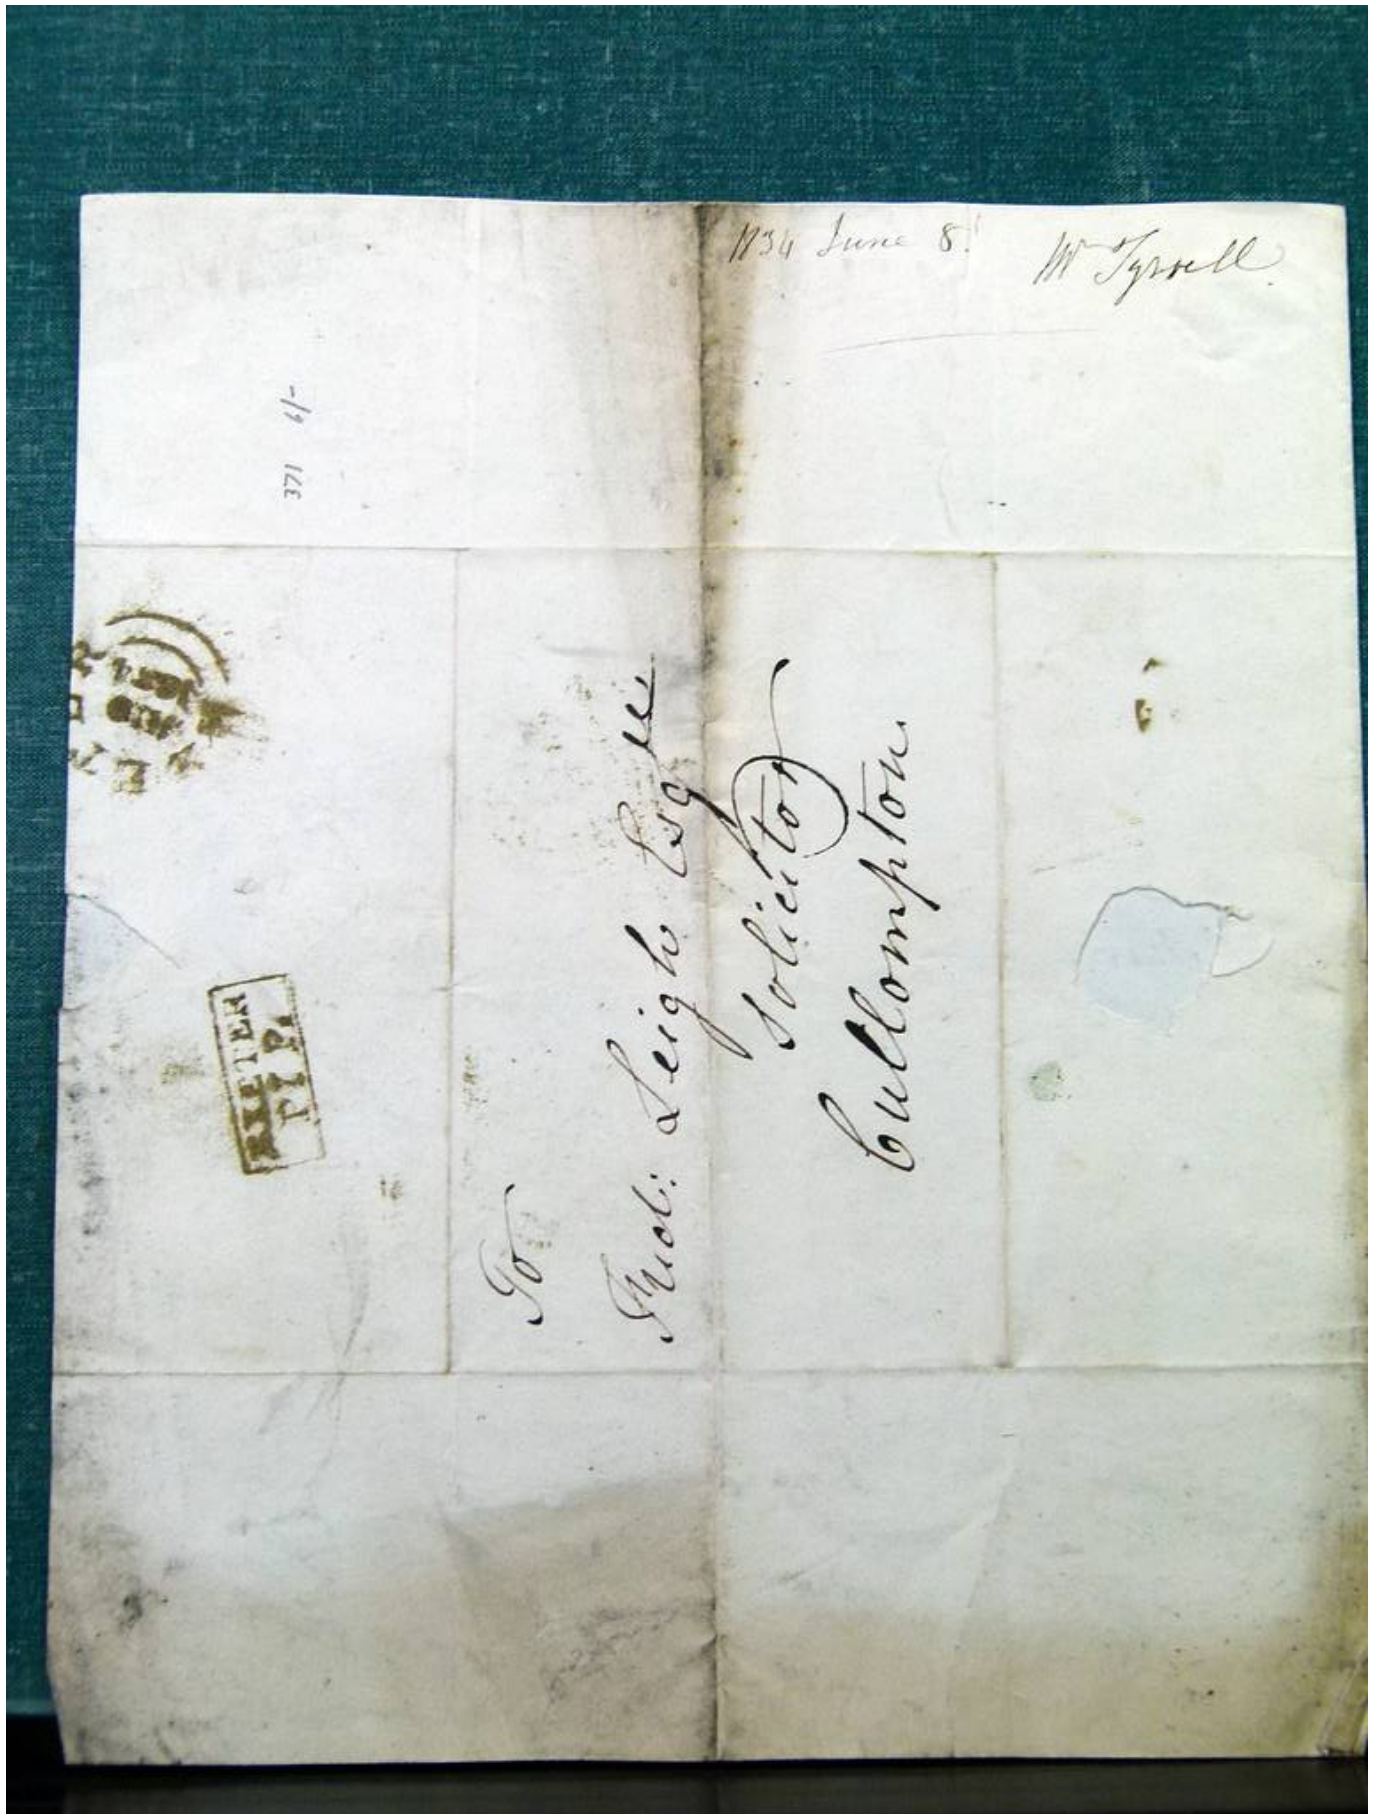 1834 June 8.
Mr Tyrrell.
371 6/-
EXETER
EXETER
P.P.
To
Fred: Leigh Esqre
Solicitor
Cullompton.